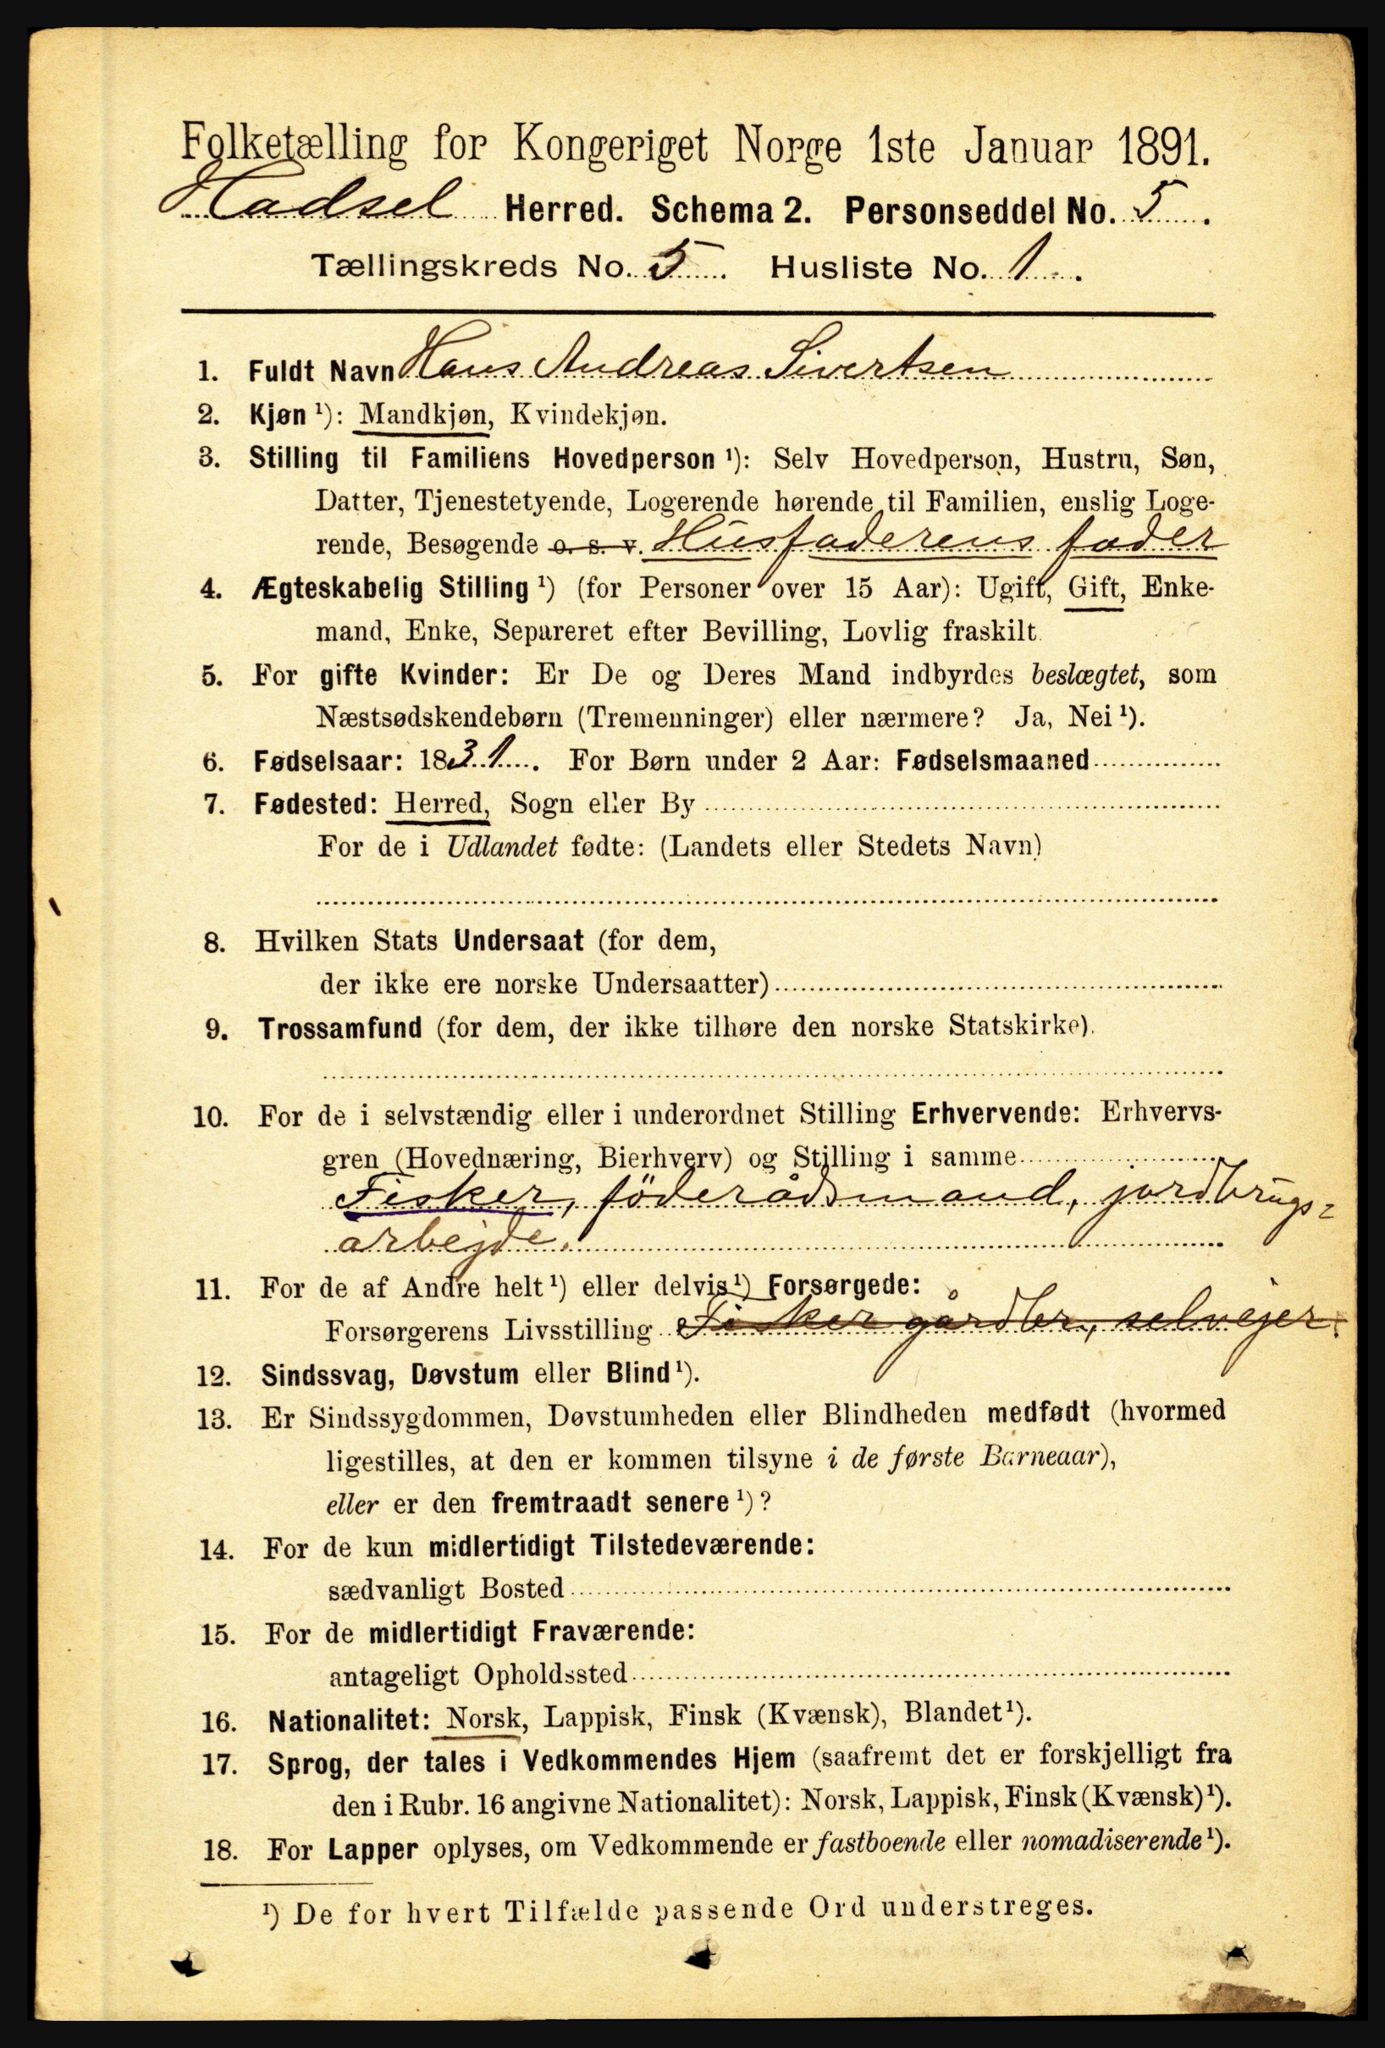 Folketælling for Kongeriget Norge 1ste Januar 1891.
Hadsel Herred. Schema 2. Personseddel No. 5.
Tællingskreds No. 5. Husliste No. 1.
1. Fuldt Navn Hans Andreas Sivertsen
2. Kjøn ¹): Mandkjøn, Kvindekjøn.
3. Stilling til Familiens Hovedperson ¹): Selv Hovedperson, Hustru, Søn,
Datter, Tjenestetyende, Logerende hørende til Familien, enslig Loge-
rende, Besøgende o. s. v. Husfaderens fader
4. Ægteskabelig Stilling ¹) (for Personer over 15 Aar): Ugift, Gift, Enke-
mand, Enke, Separeret efter Bevilling, Lovlig fraskilt.
5. For gifte Kvinder: Er De og Deres Mand indbyrdes beslægtet, som
Næstsødskendebørn (Tremenninger) eller nærmere? Ja, Nei ¹).
6. Fødselsaar: 1831. For Børn under 2 Aar: Fødselsmaaned
7. Fødested: Herred, Sogn eller By
For de i Udlandet fødte: (Landets eller Stedets Navn)
8. Hvilken Stats Undersaat (for dem,
der ikke ere norske Undersaatter)
9. Trossamfund (for dem, der ikke tilhøre den norske Statskirke).
10. For de i selvstændig eller i underordnet Stilling Erhvervende: Erhvervs-
gren (Hovednæring, Bierhverv) og Stilling i samme
Fisker, föderådsmand, jordbrugs=
arbejde.
11. For de af Andre helt ¹) eller delvis ¹) Forsørgede:
Forsørgerens Livsstilling Fisker gårdbr, selvejer.
12. Sindssvag, Døvstum eller Blind ¹).
13. Er Sindssygdommen, Døvstumheden eller Blindheden medfødt (hvormed
ligestilles, at den er kommen tilsyne i de første Barneaar),
eller er den fremtraadt senere ¹)?
14. For de kun midlertidigt Tilstedeværende:
sædvanligt Bosted
15. For de midlertidigt Fraværende:
antageligt Opholdssted
16. Nationalitet: Norsk, Lappisk, Finsk (Kvænsk), Blandet ¹).
17. Sprog, der tales i Vedkommendes Hjem (saafremt det er forskjelligt fra
den i Rubr. 16 angivne Nationalitet): Norsk, Lappisk, Finsk (Kvænsk) ¹).
18. For Lapper oplyses, om Vedkommende er fastboende eller nomadiserende ¹).
¹) De for hvert Tilfælde passende Ord understreges.